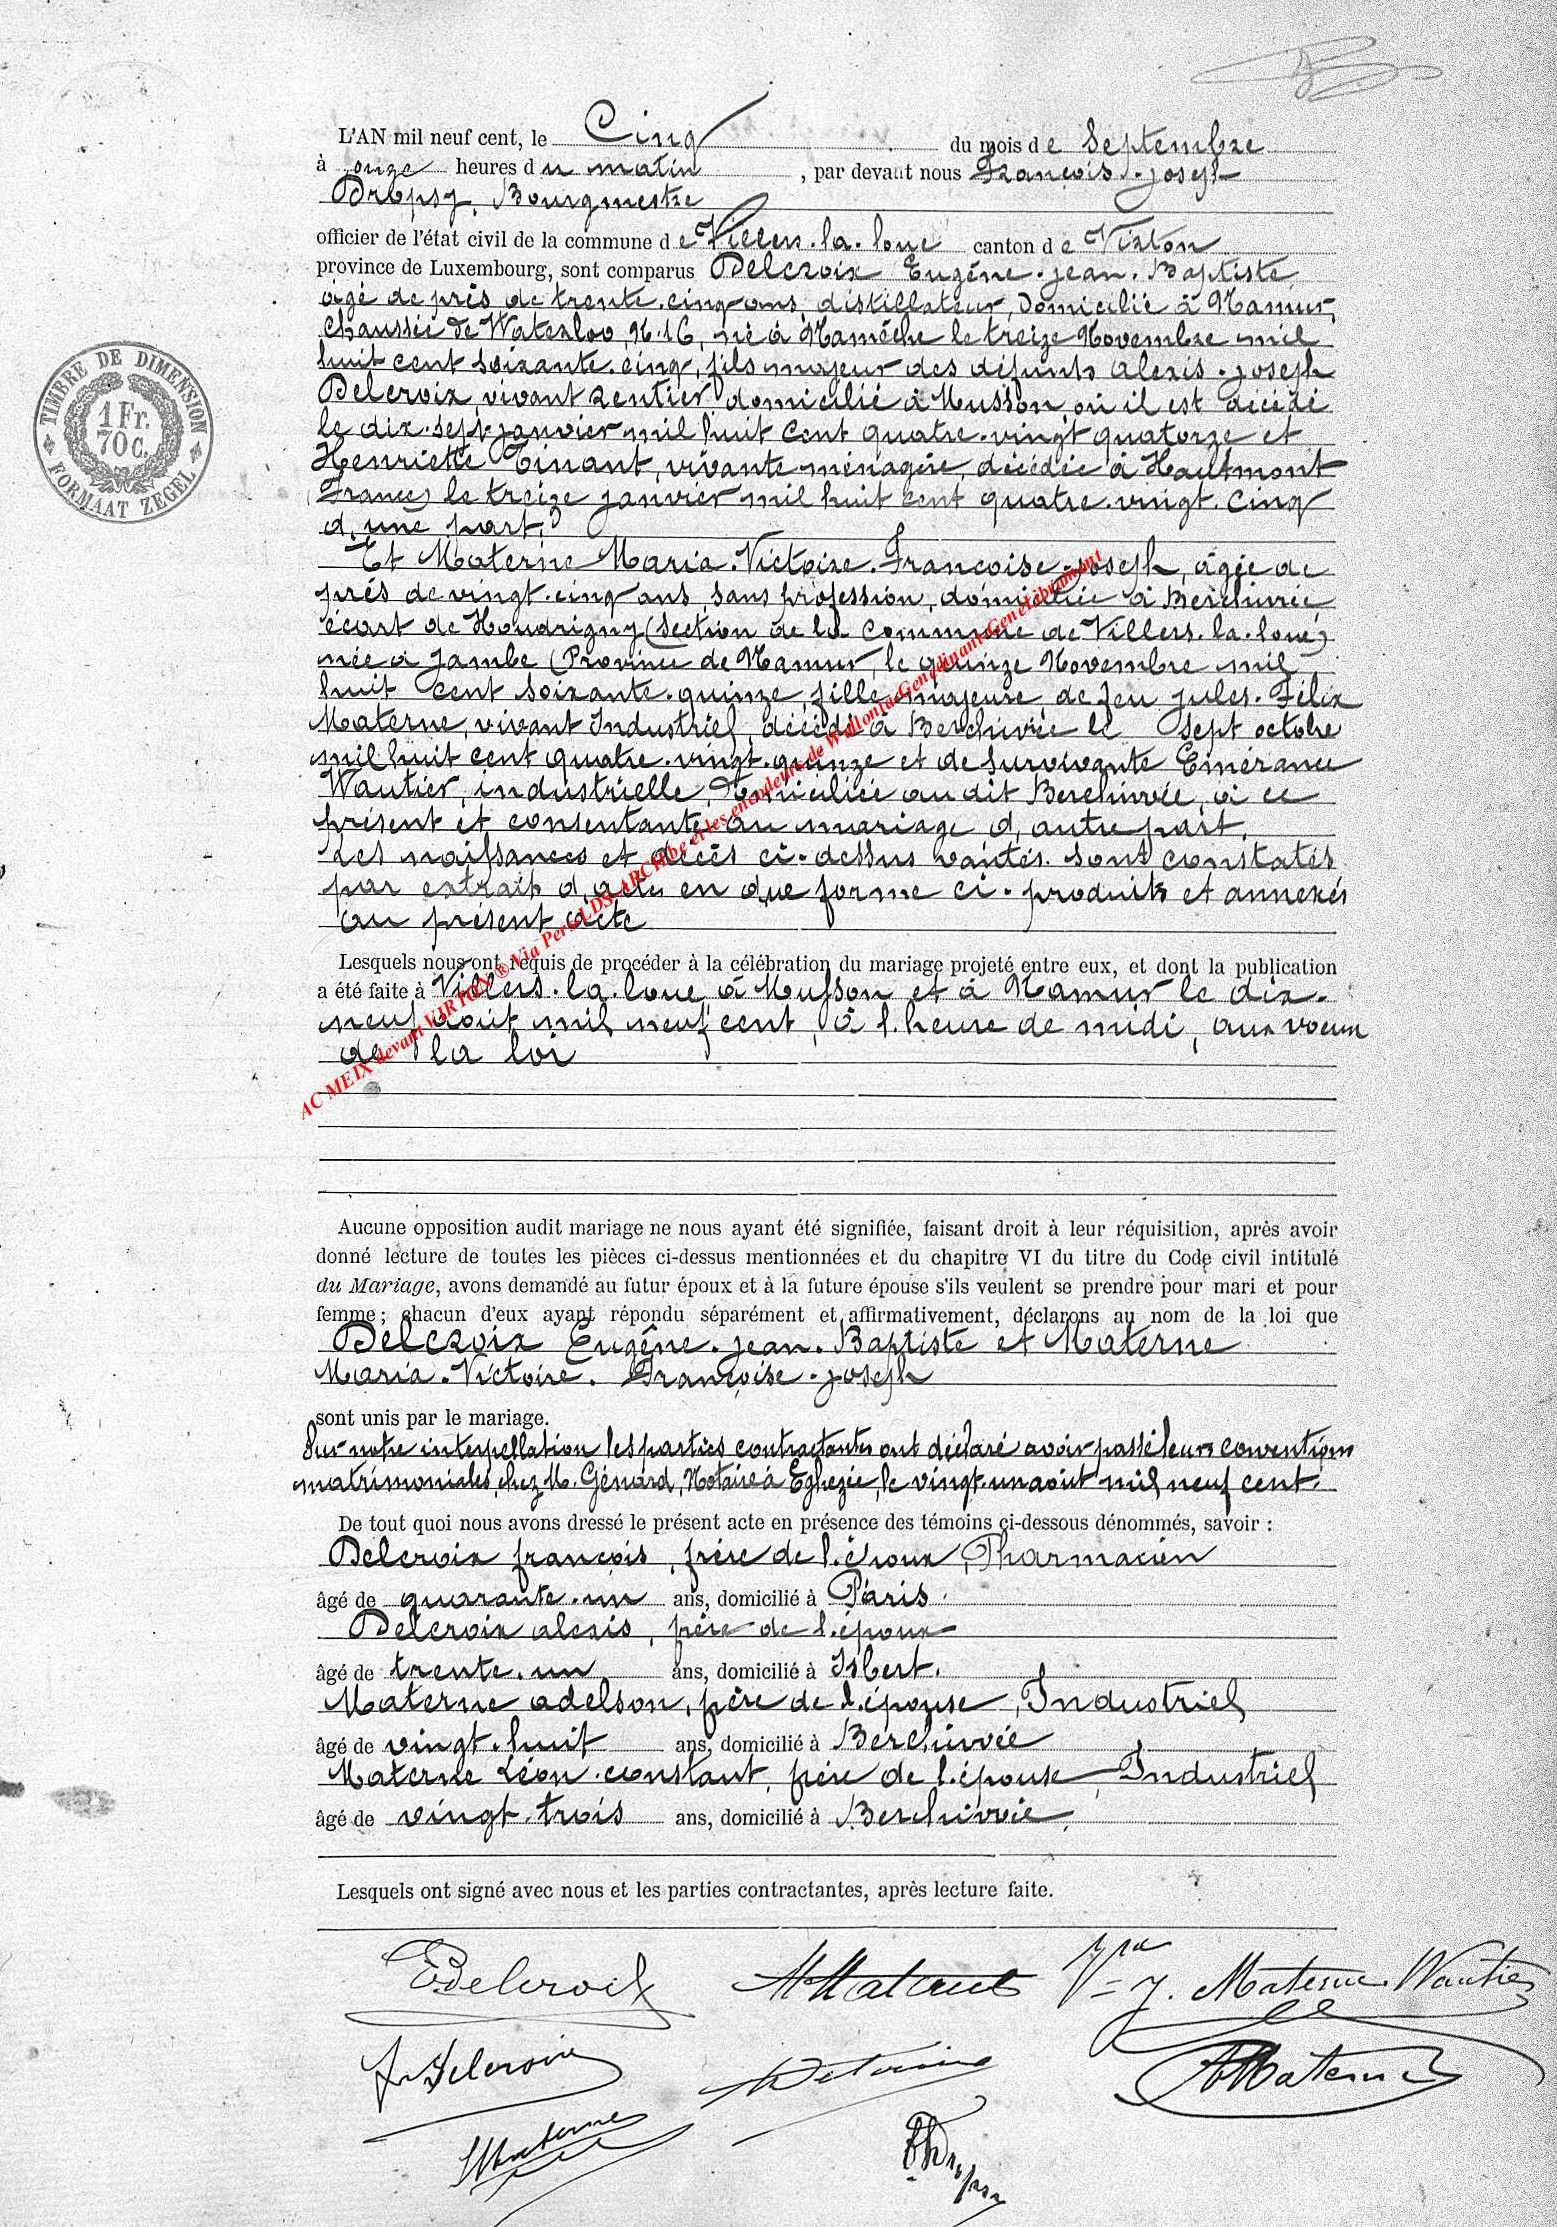 L'AN mil neuf cent, le Cinq du mois de Septembre
à onze heures du matin, par devant nous François-joseph
Dropsy, Bourgmestre
officier de l'état civil de la commune de Villers-la-loue canton de Virton
province de Luxembourg, sont comparus Delcroix Eugêne-jean-Baptiste
âgé de près de trente-cinq ans, distillateur, domicilié à Namur,
Chaussée de Waterloo, N. 16, né à Namêche le treize Novembre mil
huit cent soixante-cinq, fils majeur des défunts alexis-joseph
Delcroix, vivant rentier domicilié à Musson, où il est décédé
le dix-sept janvier mil huit cent quatre-vingt quatorze et
Henriette Tinant, vivante ménagère, décédée à Hautmont
(France) le treize janvier mil huit cent quatre-vingt-cinq
d'une part,
Et Materne Maria-Victoire-Francoise-joseph, âgée de
près de vingt-cinq ans, sans profession, domiciliée à Berchivvée
écart de Houdrigny (Section de la commune de Villers-la-loue)
née à Jambe (Province de Namur, le quinze Novembre mil
huit cent soixante-quinze, fille majeure, de feu jules-Félix
Materne, vivant Industriel, décédé à Berchivvée le sept octobre
mil huit cent quatre-vingt-quinze et de survivante Emérance
Wautier, industrielle, domiciliée au dit Berchivvée, à ce
présent et consentante au mariage d'autre part.
Les naissances et décès ci-dessus vantés sont constatés
par extraits d'actes en due forme ci-produits et annexés
au présent acte
Lesquels nous ont requis de procéder à la célébration du mariage projeté entre eux, et dont la publication
a été faite à Villers-la-loue, à Musson et à Namur le dix-
neuf août mil neuf cent, à l'heure de midi, aux voeux
de la loi
Aucune opposition audit mariage ne nous ayant été signifiée, faisant droit à leur réquisition, après avoir
donné lecture de toutes les pièces ci-dessus mentionnées et du chapitre VI du titre du Code civil intitulé
du Mariage, avons demandé au futur époux et à la future épouse s'ils veulent se prendre pour mari et pour
femme; chacun d'eux ayant répondu séparément et affirmativement, déclarons au nom de la loi que
Delcroix Eugêne-jean-Baptiste et Materne
Maria-Victoire-Françoise-joseph
sont unis par le mariage.
Sur notre interpellation les parties contractantes ont déclaré avoir passé leurs conventions
matrimoniales, chez M. Génard, Notaire à Eghezée, le vingt-un août mil neuf cent.
De tout quoi nous avons dressé le présent acte en présence des témoins ci-dessous dénommés, savoir :
Delcroix françois, frère de l'époux, Pharmacien
âgé de quarante-un ans, domicilié à Paris.
Delcroix alexis, frère de l'époux
âgé de trente-un ans, domicilié à Isbert.
Materne adelson, frère de l'épouse, Industriel
âgé de vingt-huit ans, domicilié à Berchivvée
Materne Léon-constant, frère de l'épouse, Industriel
âgé de vingt-trois ans, domicilié à Berchivvée.
Lesquels ont signé avec nous et les parties contractantes, après lecture faite.
E Delcroix M Materne Vve J. Materne-Wautier
F. Delcroix A Delcroix A Materne
L Materne
F J Dropsy
TIMBRE DE DIMENSION
1 Fr.
70 C.
FORMAAT ZEGEL
AC MEIX devant VIRTON ® Via Pers LDS ARCH.be et les encodeurs de Wallonia Gen